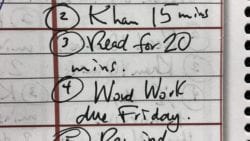 ② Khan 15 mins
③ Read for 20
mins.
④ Word Work
due Friday.